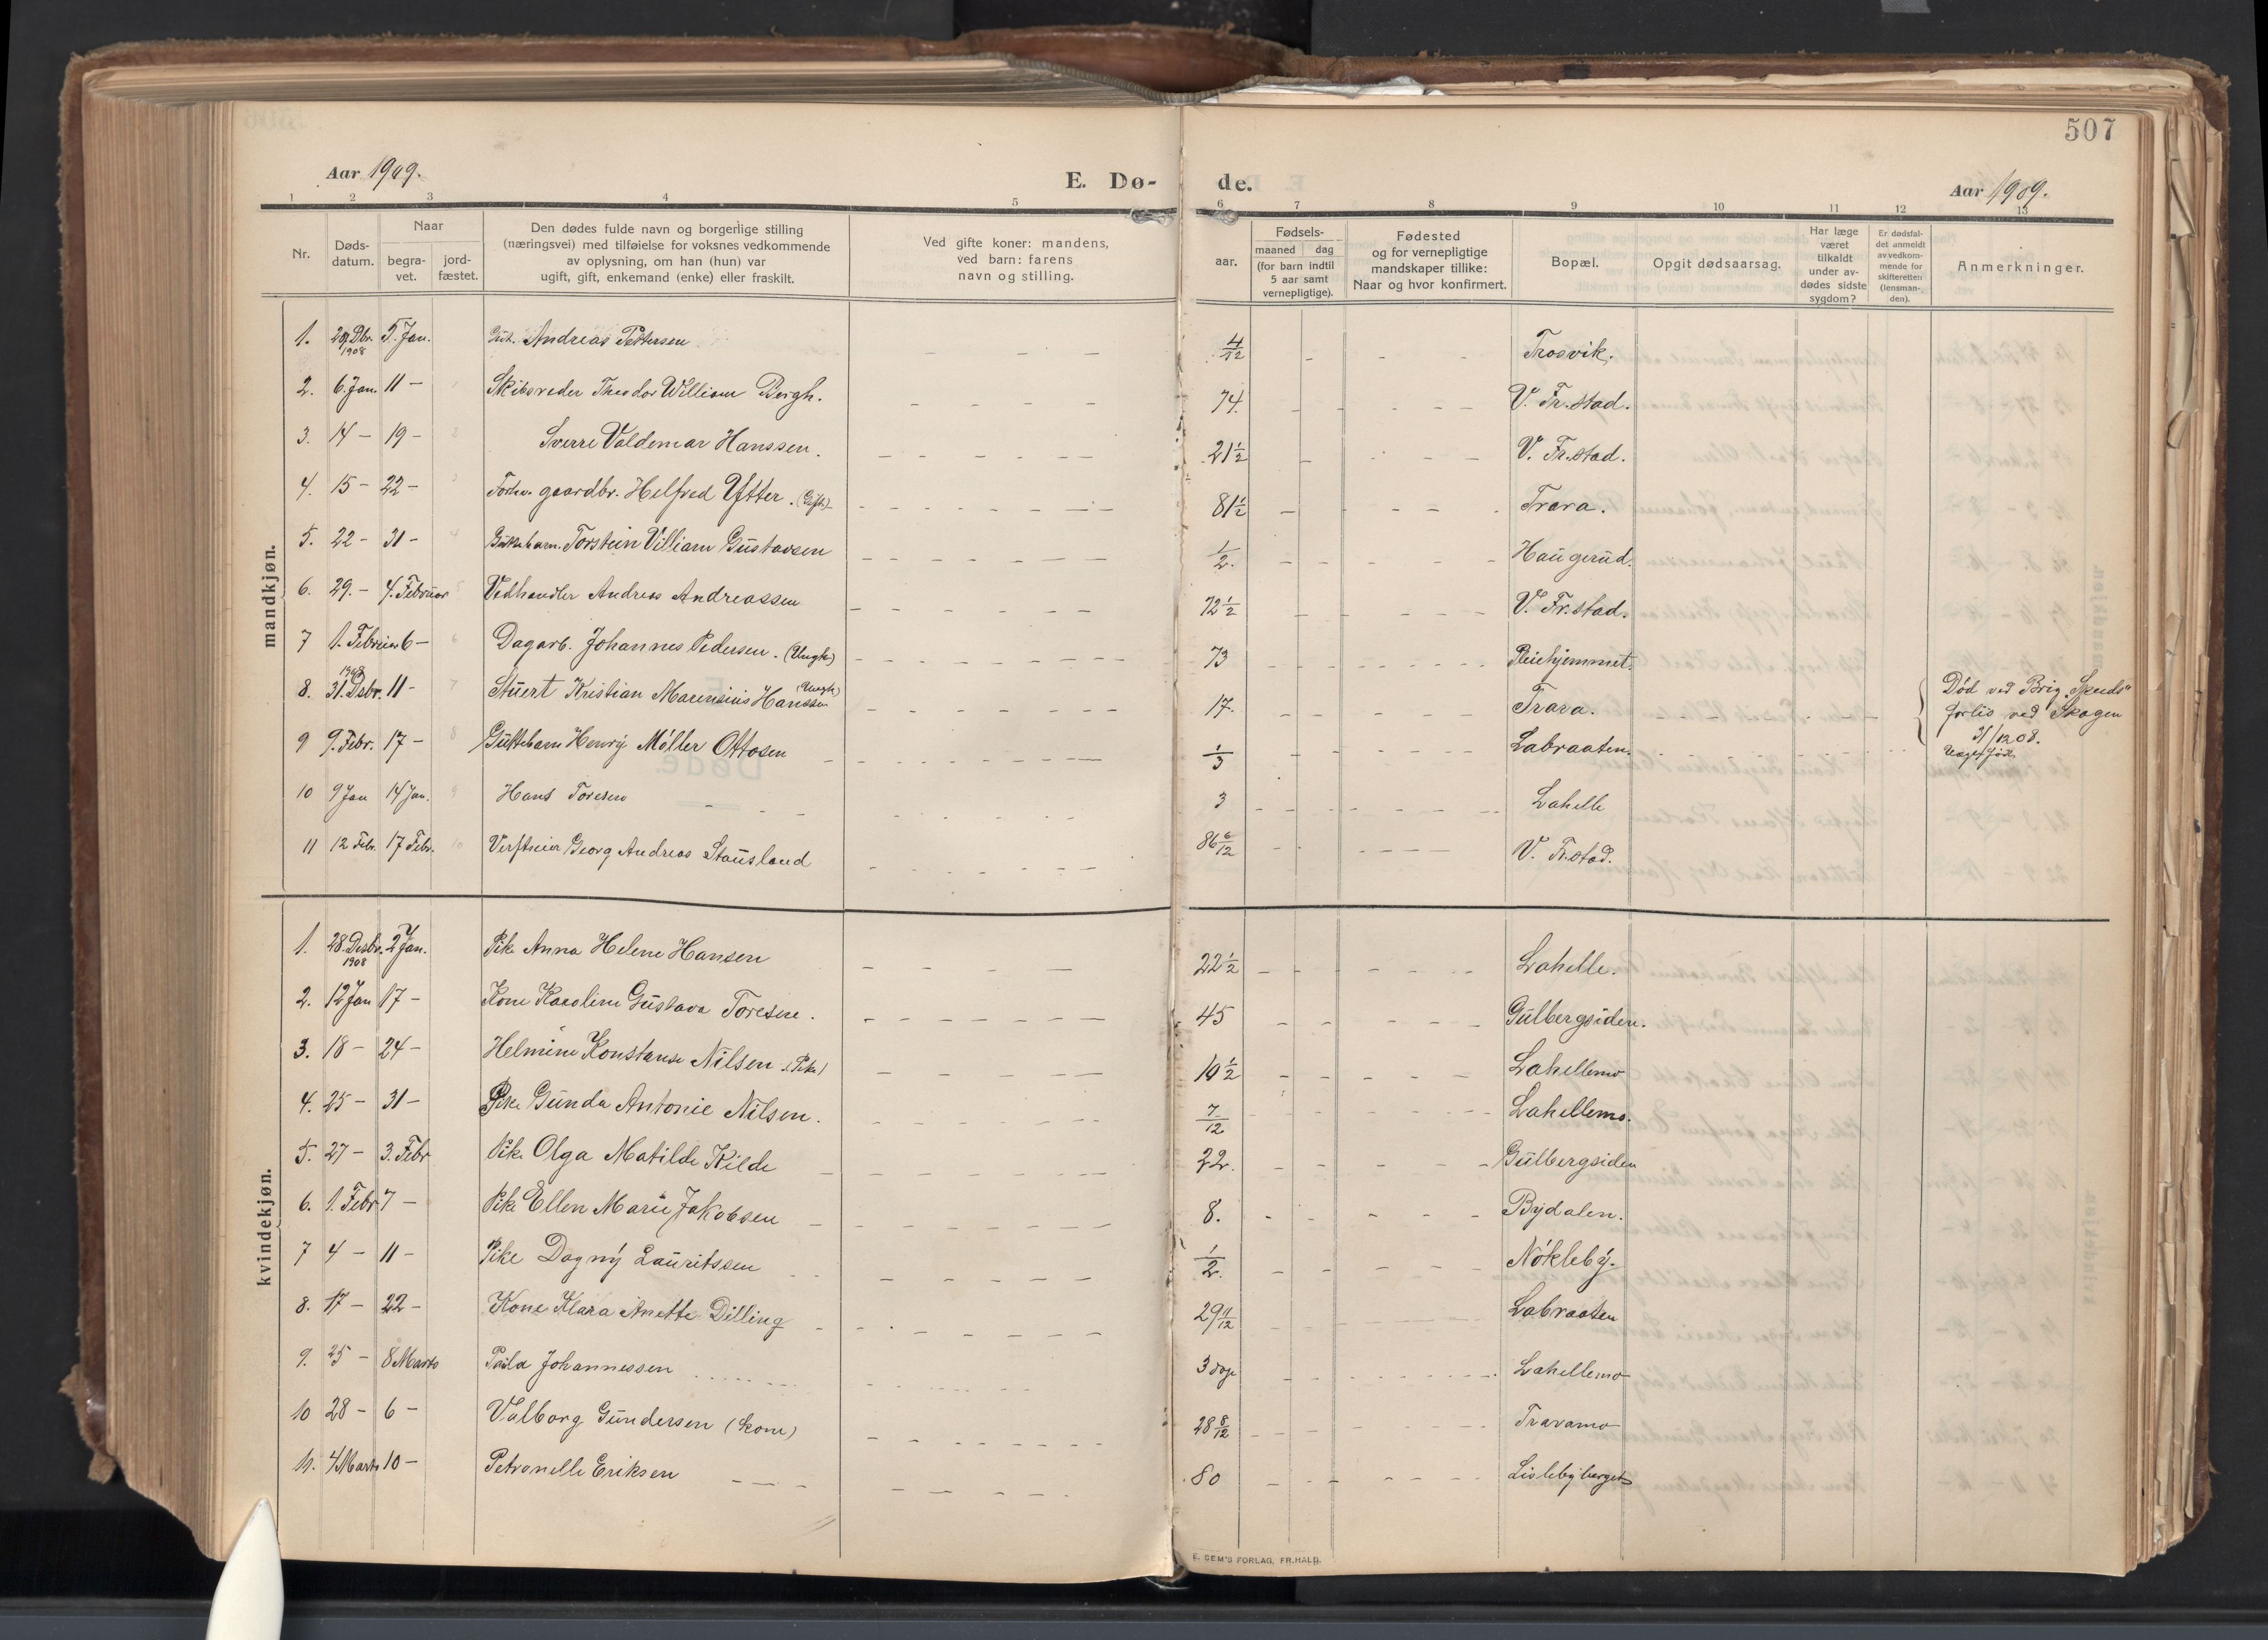 507
Aar 1909.
E. Dø-
de.
Aar 1909.
1 2 3 4 5 6 7 8 9 10 11 12 13
Nr.
Døds-
datum.
Naar
begra-
vet.
jord-
fæstet.
Den dødes fulde navn og borgerlige stilling
(næringsvei) med tilføielse for voksnes vedkommende
av oplysning, om han (hun) var
ugift, gift, enkemand (enke) eller fraskilt.
Ved gifte koner: mandens,
ved barn: farens
navn og stilling.
aar.
Fødsels-
maaned dag
(for barn indtil
5 aar samt
vernepligtige).
Fødested
og for vernepligtige
mandskaper tillike:
Naar og hvor konfirmert.
Bopæl.
Opgit dødsaarsag.
Har læge
været
tilkaldt
under av-
dødes sidste
sygdom?
Er dødsfal-
det anmeldt
av vedkom-
mende for
skifteretten
(lensman-
den).
Anmerkninger.
mandkjøn.
1. 29 Dbr. 1908 5. Jan. Andreas Pettersen 4/12 Trosvik.
2. 6. Jan. 11 – Skibsreder Theodor William Bergh. 74 V. Fr.stad.
3. 14 – 19 – Sverre Valdemar Hanssen. 21 1/2 V. Fr.stad.
4. 15 – 22 – Forhv. gaardbr. Helfred Ytter. (Gift) 81 1/2 Trara.
5. 22 – 31 – Guttebarn Torstein Villiam Gustavsen 1/2. Haugerud.
6. 29. – 4. Februar Vedhandler Andreas Andreassen 72 1/2 V. Fr.stad.
7 1. Februar 6 – Dagarb. Johannes Pedersen. (Ungk) 73 Pleiehjemmet.
8. 31. Desbr. 1908 11 – Stuert Kristian Marensius Hanssen (Ungk) 17. Trara. Død ved Brig „Skuds“
forlis ved Skagen
31/12 08.
9 9. Febr. 17 – Guttebarn Henry Møller Ottosen 1/3 Labraaten.
10 9 Jan 14 Jan. Hans Toresen 3 Lahelle
11 12 Febr. 17 Febr. Verfteier Georg Andreas Stausland 86 6/12 V. Fr.stad.
kvindekjøn.
1. 28. Desbr. 1908 2 Jan. Pike Anna Helene Hansen 22 1/2 Lahelle.
2. 12 Jan 17 – Kone Karoline Gustava Toresen. 45 Gulbergsiden.
3. 18 – 24 – Helmine Konstanse Nilsen. (Pike) 19 1/2 Lahellemo
4. 25 – 31 – Pike Gunda Antonie Nilsen. 7/12 Lahellemo.
5. 27 – 3. Febr Pike Olga Matilde Kilde 22. Gulbergsiden
6. 1. Febr 7 – Pike Ellen Marie Jakobsen 8. Bydalen.
7 4 – 11 – Pike Dagny Lauritssen 1/2. Nökleby.
8. 17 – 22 – Kone Klara Anette Dilling 29 11/12 Labraaten
9. 25 – 8 Marts Paula Johannessen 3 dage Lahellemo
10 28 – 6 – Valborg Gundersen (kone) 28 8/12 Traramo
11. 4 Marts 10 – Petronelle Eriksen 80 Lislebyberget
E. SEM'S FORLAG, FR.HALD.